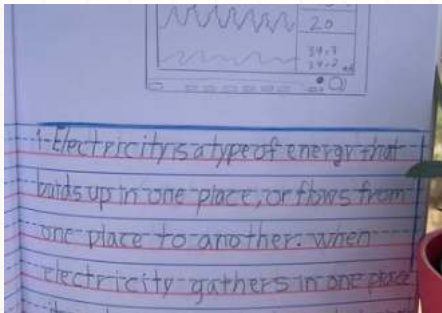 20
37.7
37.2
1-Electricity is a type of energy that
builds up in one place, or flows from
one place to another. when
electricity gathers in one place